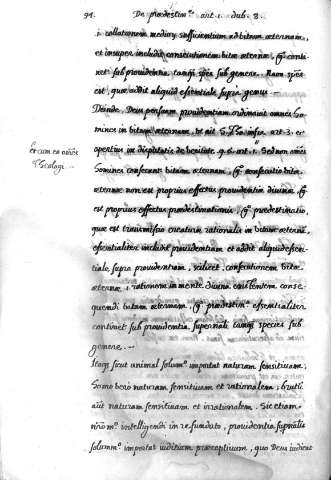 94. De prædestin.e art. 1. dub. 8.
i collationem medioꝝ sufficientium ad vitam æternam,
et insuper includit consecutionem vitæ æternæ, g. conti-
net sub providentia tanq̃ spẽs sub genere. Nam spẽs
est, quæ addit aliquid essentiale supra genus —
Deinde. Deus per suam providentiam ordinavit omnes ho-
mines in vitam æternam, ut ait S. Tho. infra art. 3. et
apertius in disputatis de veritate q. 6. art. 1. Sed non oẽs
homines consequunt vitam æternam, g. consecutio vitæ
æternæ non est proprius effectus providentiæ divinæ, g.
est proprius effectus prædestinationis, g. prædestinatio,
quæ est transmissio creaturæ rationalis in vitam æternã,
essentialiter includit providentiam et addit aliquid essen-
tiale supra providentiam, scilicet, consecutionem vitæ
æternæ, i rationem in mente divina existentem conse-
quendi vitam æternam. g. prædestin.o essentialiter
continet sub providentia supernali tanq̃ species sub
genere. —
Itaq; sicut animal solum.o importat naturam sensitivam,
homo vero naturam sensitivam et rationalem; brutũ
aũt naturam sensitivam et irrationalem. Sic etiam
nr̃o m.o intelligendi in re fundato, providentia supnãlis
solumm.o importat iuditium præceptivum, quo Deus iudicat
et cum eo om̃es
Theologi. —